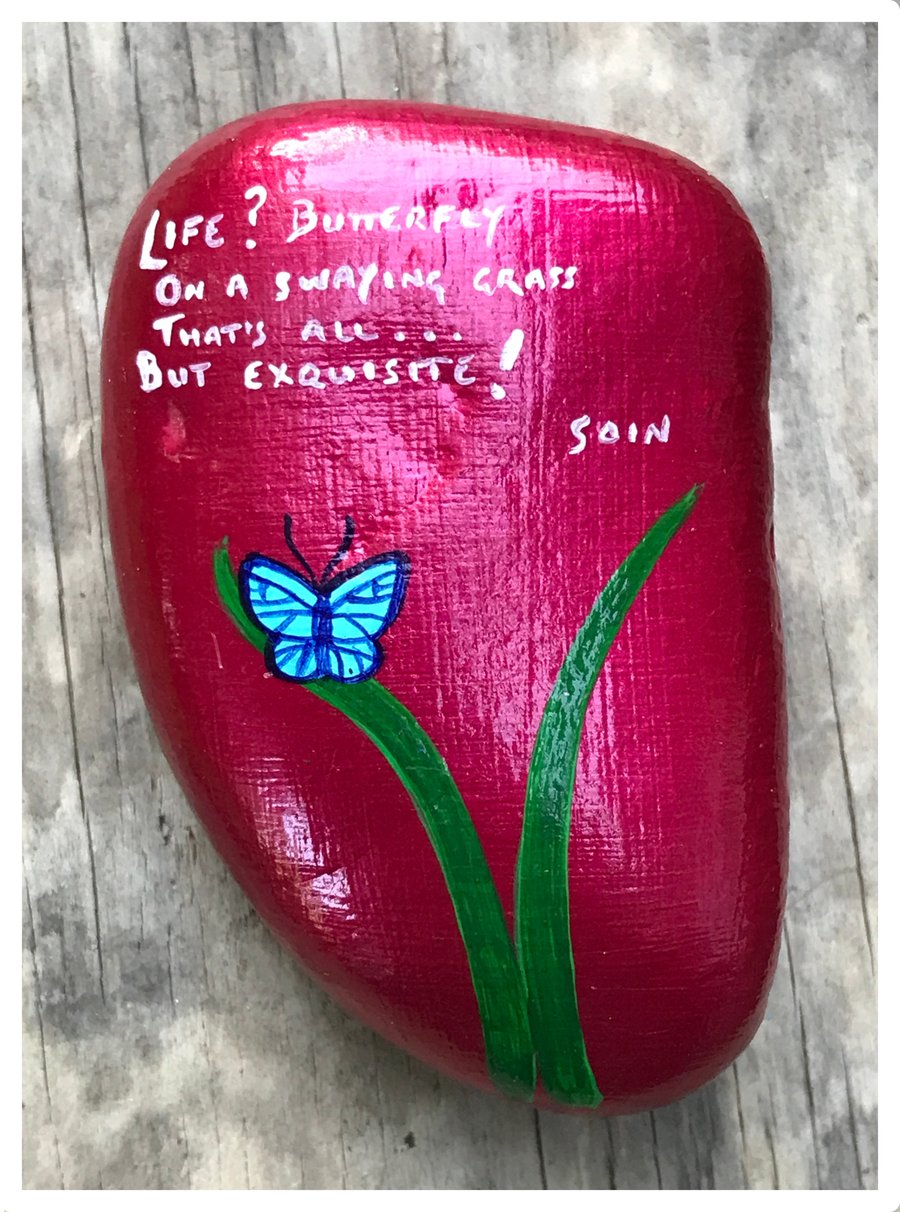 LIFE? BUTTERFLY
ON A SWAYING GRASS
THAT'S ALL...
BUT EXQUISITE!
SOIN